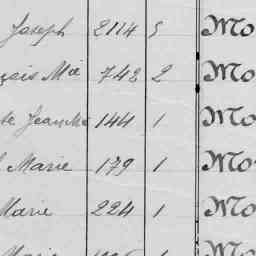 Joseph 2114 5 Mo
çois Mie 742 2 Mo
te Jean Me 144 1 Mo
Marie 179 1 Mo
Marie 224 1 Mo
Marie Mo